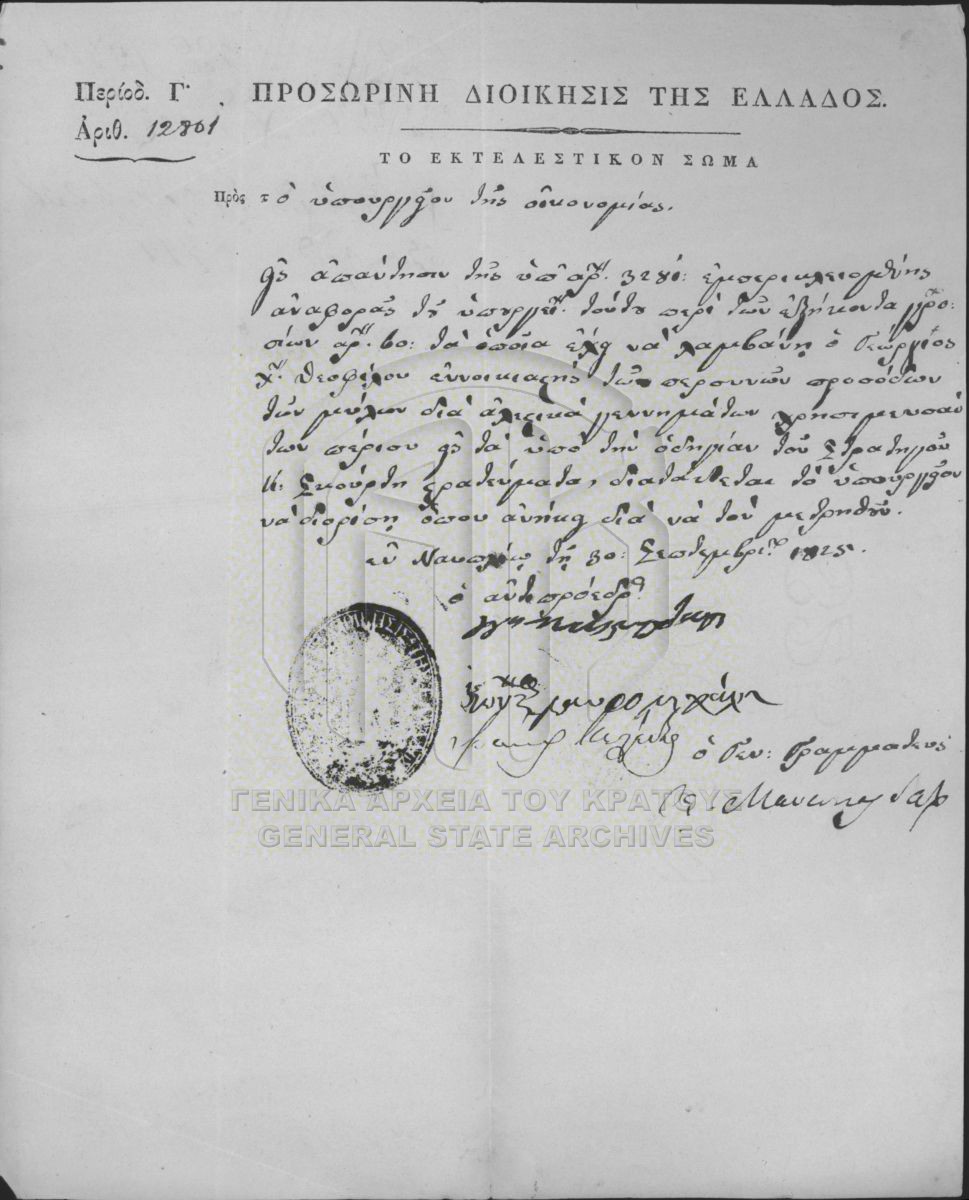 Περίοδ. Γʹ
ΠΡΟΣΩΡΙΝΗ ΔΙΟΙΚΗΣΙΣ ΤΗΣ ΕΛΛΑΔΟΣ.
Ἀριθ. 12801
ΤΟ ΕΚΤΕΛΕΣΤΙΚΟΝ ΣΩΜΑ
Πρὸς τὸ ὑπουργεῖον τῆς οἰκονομίας.
εἰς ἀπάντησιν τῆς ὑπ' ἀρ: 3281: ἐμπερικλειομένης
ἀναφορᾶς τοῦ ὑπουργεί: τούτου περὶ τῶν ἑξήκοντα γρο-
σίων ἀρ: 60: τὰ ὁποῖα ἔχει νὰ λαμβάνῃ ὁ Γεώργιος
χ: Θεοφίλου ἐνοικιαστὴς τῶν περσυνῶν προσόδων
τῶν μύλων διὰ ἀλεστικὰ γεννημάτων χρησιμευσάν
των πέρισυ εἰς τὰ ὑπὸ τὴν ὁδηγίαν τοῦ Στρατηγοῦ
Κ: Σκούρτη στρατεύματα, διατάττεται τὸ ὑπουργεῖον
νὰ διορίσῃ ὅπου ἀνήκει διὰ νὰ τοῦ μετρηθοῦν.
ἐν Ναυπλίῳ τῇ 30: Σεπτεμβρί: 1825
ὁ ἀντιπρόεδρος
μαυρομιχάλης
ὁ Γεν: Γραμματεὺς
ΓΕΝΙΚΑ ΑΡΧΕΙΑ ΤΟΥ ΚΡΑΤΟΥΣ
GENERAL STATE ARCHIVES